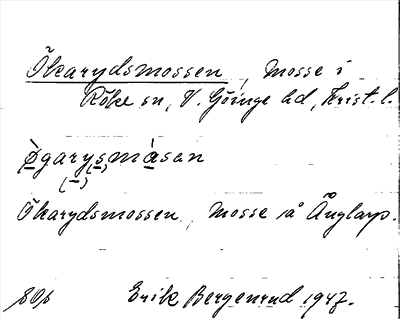 Ökarydsmossen, Mosse i
Röke sn, V. Göinge hd, Krist. l.
ø̀garysmàsan
(–) (–)
Ökarydsmossen, Mosse å Änglarp.
Erik Bergenrud 1947.